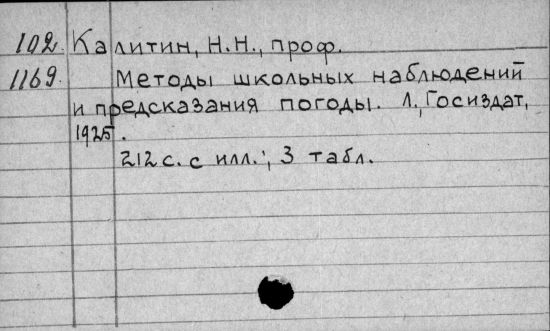 102. Калитин, Н.Н., проф.
1169. Методы школьных наблюдений
и предсказания погоды. Л., Госиздат,
1925.
212 с. с илл.; 3 табл.